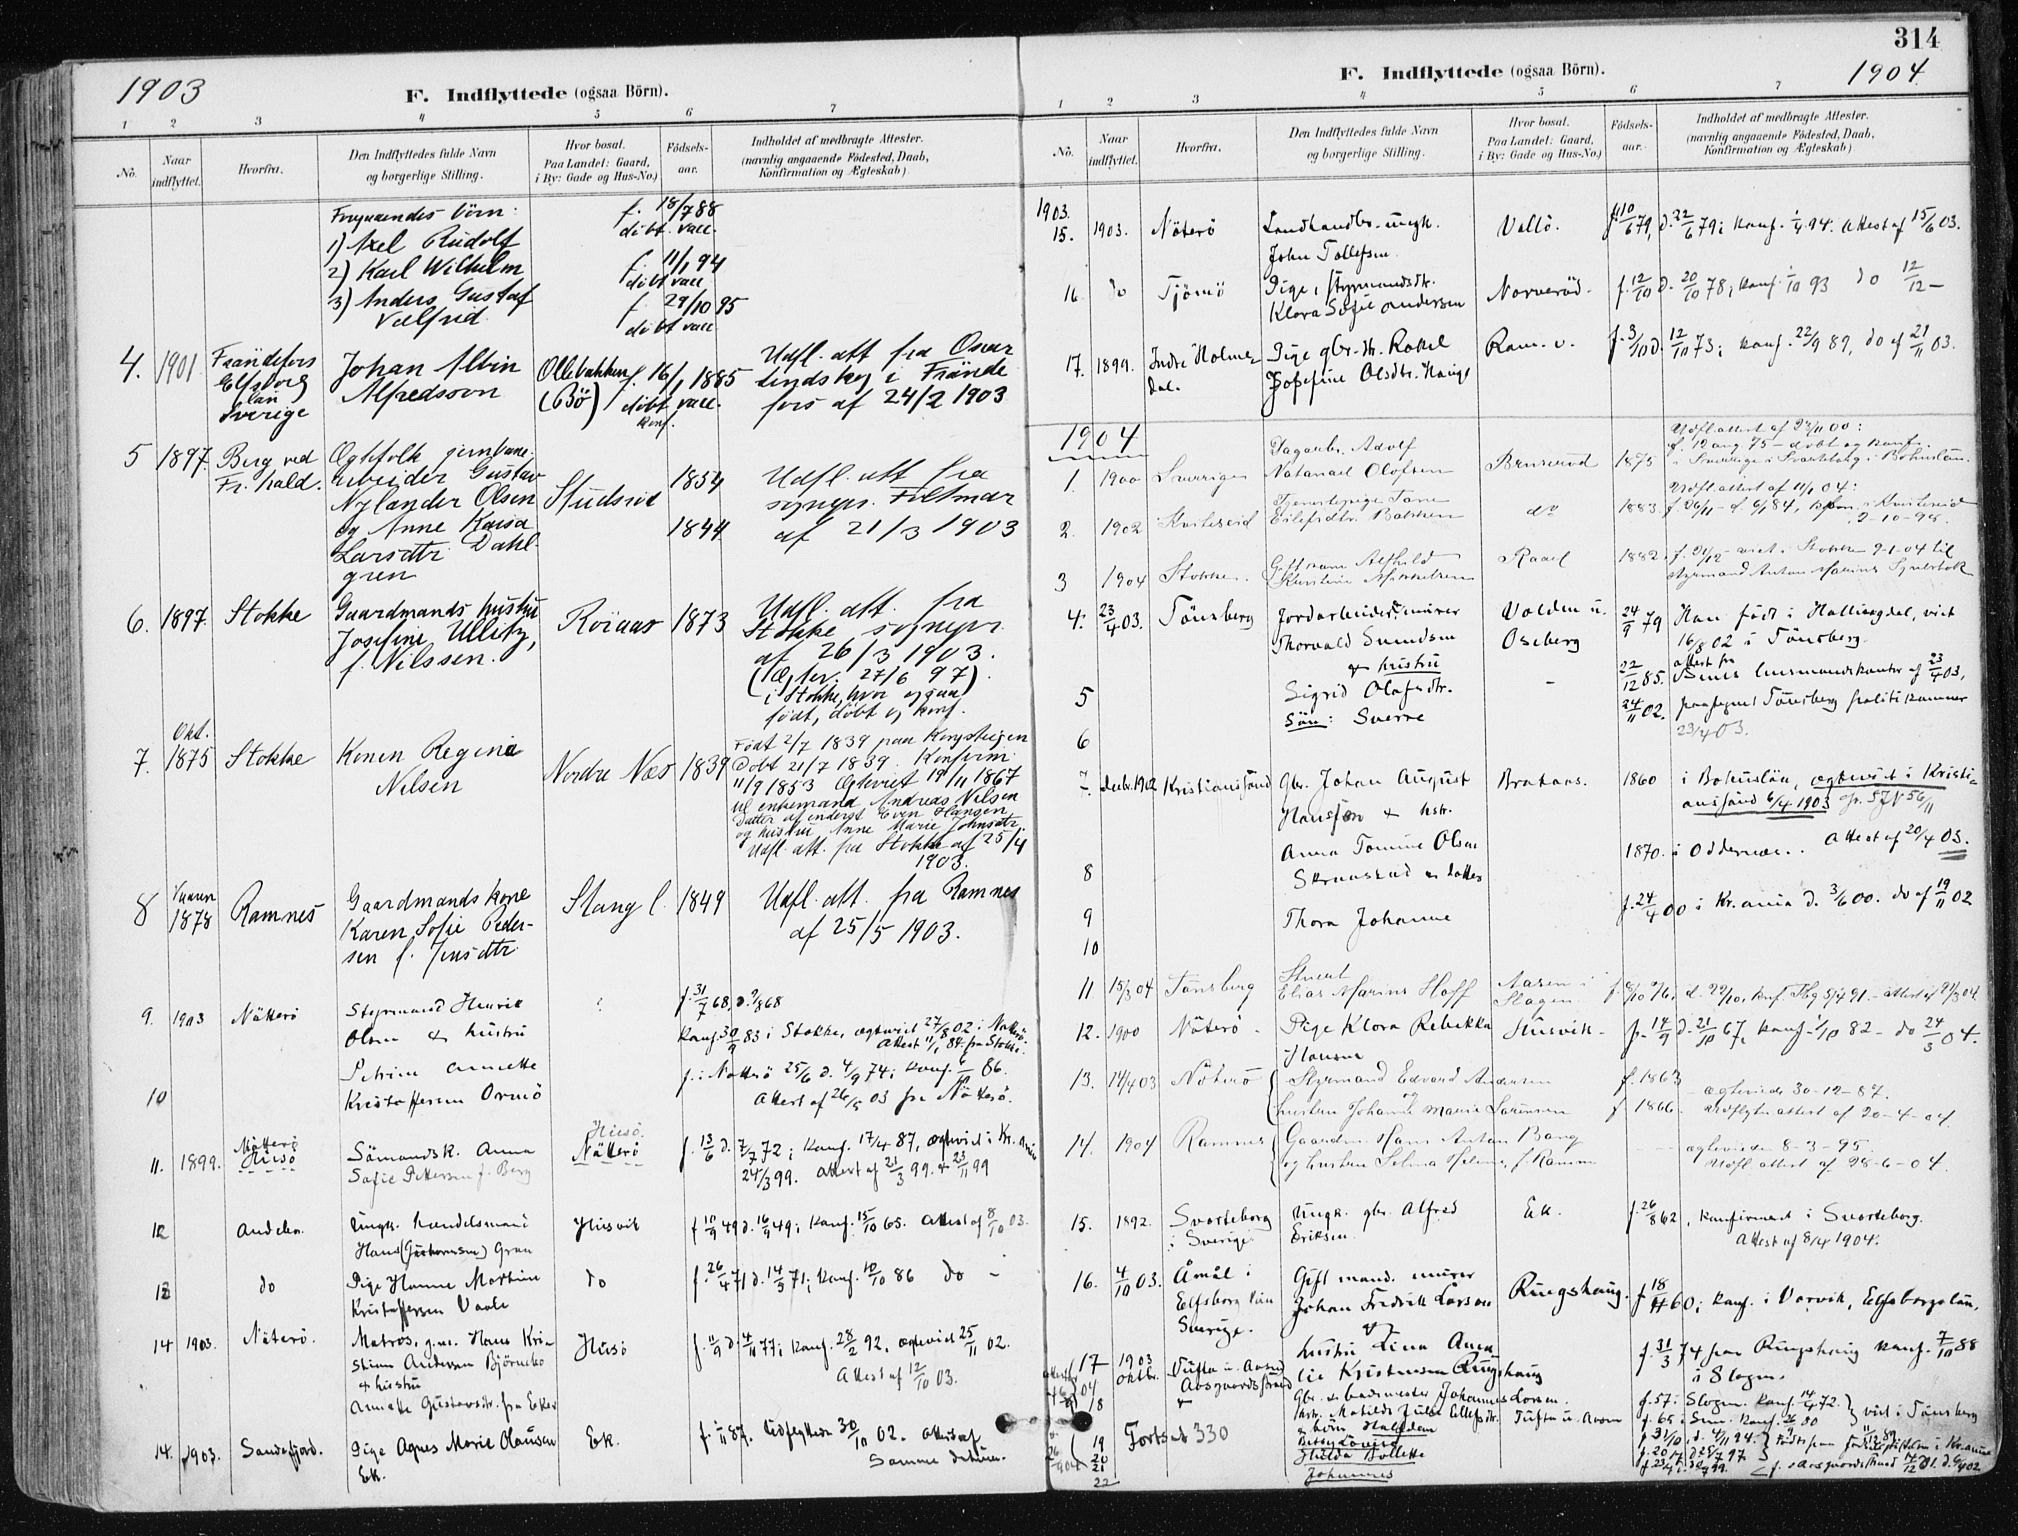 1903
F. Indflyttede (ogsaa Börn).
1 2 3 4 5 6 7
No.
Naar indflyttet.
Hvorfra.
Den Indflyttedes fulde Navn og borgerlige Stilling.
Hvor bosat. Paa Landet: Gaard, i By: Gade og Hus-No.)
Födsels-aar.
Indholdet af medbragte Attester. (navnlig angaaende Födested, Daab, Konfirmation og Ægteskab)
börn:
1) Axel Rudolf f. 18/7 88
döbt. vacc.
2) Karl Wilhelm f. 11/1 94
döbt vacc
3) Anders Gustaf f 29/10 95
Valfrid döbt vacc
4. 1901 Frändefors Johan Alvin Ollebakken f. 16/1 1885 Udfl. att fra
Elfsborg Alfredsson (Bö) döbt vacc. i Frände
län konf. fors af 24/2 1903
Sverige
5 1897. Berg ved Ægtefolk jernbane
Fr.hald. arbeider Gustav 1854 Udfl. att fra
Nylander Olsen Studsrød sogner.
og Anne Kaisa 1844 af 21/3 1903
Larsdtr Dahl-
gren
6. 1897. Stokke Gaardmands hustru Röiaas 1873 Udfl. att. fra
Josefine Ullitz, Stokke sognepr.
f. Nilssen. af 26/3 1903.
(Ægtev. 27/6 97)
i Stokke, hvor ogsaa
født, döbt og konf.
Okt.
7. 1875 Stokke Konen Regine Nordre Næs 1839 Født 2/7 1839 paa
Nilsen Döbt 21/7 1839. Konfirm.
11/9 1853 Ægteviet 19/11 1867
til enkemand Andreas Nilsen
Datter af Even Hansen
og hustru Anne Marie Johnsdtr.
Udfl. att. fra Stokke af 25/4
1903.
8 1878 Ramnes Gaardmandskone Stang l. 1849 Udfl. att. fra Ramnes
Karen Sofie Peder- af 25/5 1903.
sen f. Jensdtr.
9. 1903 Nötterö Styrmand Henrik f. 31/7 68,
Olsen & hustru konf. 30/9 83 i Stokke, ægteviet 27/8 02 i
Petrine Annette f. i Nötterö 25/6 d. 4/9 74; konf. 86.
10 Kristoffersen Ormö Attest af 26/5 03 fra Nötterö.
Nötterö Husö.
11. 1899. Husö Sömandsk. Anna Nötterö f. 13/6 d. 7/7 72; konf. 17/4 87, ægteviet i Kr.ania
Sofie Pettersen f. Berg 24/3 99. Attest af 21/3 99. & 23/11 99
12 Andebu Ungk. handelsmand Husvik f 10/9 49 d. 16/9 49; konf. 15/10 65. Attest af 8/10 03.
Hans (Guttormsen) Gran
13 do Pige Hanne Martine do f. 26/4 71 d. 14/5 71; konf. 10/10 86 do –
Kristoffersen Vaale
14 1903. Nöterö. Matros, g.m. Hans Kri- Husö f. 11/9 d. 4/11 77; konf. 28/2 92, ægteviet 25/11 02.
stian Andersen Björnebo Attest af 12/10 03.
& hustru
Annette Gustavsdtr. fra Eker
14. 1903. Sandefjord. Pige Agnes Marie Olausen Ek. f. 87. Udflyttede 30/10 02. Attest af
Ek. Samme datum.

314
F. Indflyttede (ogsaa Börn).
1904
1 2 3 4 5 6 7
No.
Naar indflyttet.
Hvorfra.
Den Indflyttedes fulde Navn og borgerlige Stilling.
Hvor bosat. Paa Landet: Gaard, i By: Gade og Hus-No.)
Födsels-aar.
Indholdet af medbragte Attester. (navnlig angaaende Födested, Daab, Konfirmation og Ægteskab)
1903.
15. 1903. Nöterö Landhandler-ungk. Vallö. f. 10/6 79, d. 22/6 79; konf. 94. Attest af 15/6 03.
John Tollefsen
16. do Tjömö Pige, styrmandsdtr. Norveröd. f. 12/10 d. 20/10 78, konf. 93 do 12/12 –
Klara Sofie Andersen
17. 1899. Indre Holme- Pige gbr.-dtr. Rakel Ram. v. f. 3/10 d. 12/10 73; konf. 22/9 89, do af 21/11 03.
dal. Josefine Olsdtr. Hauge
1904 Udfl.attest af 23/11 00:
Dagarb. Adolf f. 12 aug 75 – döbt og konf.
1. 1900 Sverige Natanael Olofsson Bruseröd 1875 i Sverige i Svarteborg i Bohuslän.
Tjenestepige Udfl.attest af 11/1 04:
2. 1902 Kviteseid Eilefsdtr. Bakken do 1883. f. 26/11 – d 6/1 84, konf. i Kviteseid
2-10-98.
3 1904 Stokke. Gift kone Alfhild Raael 1882. f. 31/12 – viet i Stokke 9-1-04 til
Kristine Mikkelsen styrmand Anton Marius
4. 23/4 03. Tönsberg Jordarbeider, murer Volden u. 24/9 79 Han födt i Hallingdal, viet
Thorvald Svendsen Oseberg 16/8 02 i Tönsberg.
& hustru attest fra
5 Sigrid Olafsdtr. – 22/12 85. lensmandskontor af 23/4 03,
Sön: Sverre 24/11 02. paategnet Tönsberg politikammer
6 23/4 03.
7. decbr. 1902 Kristiansand Gbr. Johan August Brataas. 1860 i Bohuslän, ægteviet i Kristi-
Hansson & hstr. ansand 6/4 1903
Anna Tomine Olsen 1870. i Oddernæs. Attest af 20/4 03.
8
9 Thora Johanne f. 24/4 00 i Kr.ania d. 3/6 00. do af 19/11 02
10
11 15/3 04 Tönsberg Student Aasen i
Elias Marius Hoff Slagen
12. 1900 Nöterö. Pige Klara Rebekka Husvik. f. 14/9 d. 21/10 67, konf. 82 – do 24/3 04.
Hansen
13. 14/4 03 Nöterö Styrmand Edvard Andersen f. 1863 ægteviede 30-12-87.
og
hustru Johanne Marie Sörensen f 1866. Udflytn.attest af 20-4-04.
14. 1904 Ramnes Gaardm. Hans Anton Bang ægteviede 8-3-95.
og hustru Selma Helene f. Ramm Udfl. attest af 28-6-04.
15. 1892. Svarteborg Ungk. gbr. Alfred Ek. f. 26/8 62, konfirmeret i Svarteborg.
i Sverige Eriksen. Attest af 8/4 1904.
16. 4/10 03. Åmål i Gift mand. murer Ringshaug. f 18/4 60; konf. i Varvik, Elfsborgslän.
Elfsborg län Johan Fredrik Larsen
Sverige. &
hustru Lina Ama- f. 31/3 74 paa Ringshaug konf. 7/10 88
17 1903 Tufta u. Aarsrod lie Kristensen Ringshaug i Slagen.
oktbr. Aasgaardstrand
18 Gbr. & Johannes Larsen. f. 57 i Slagen. konf. 14/4 72. viet i Tönsberg
Matilde Julie Ellefsdtr. Tufta u. f. 65 i Sem. konf. 80
& börn Halfdan f. 31/10, d. 4/11 94.
19 Fortsat 330 Betsy Lovise
20 Hilda Bollette
21 Johannes
22